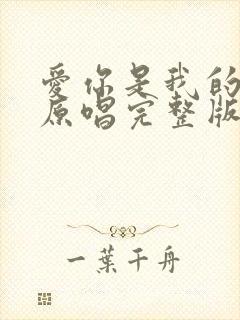 爱你是我的
原唱完整版
一叶千舟